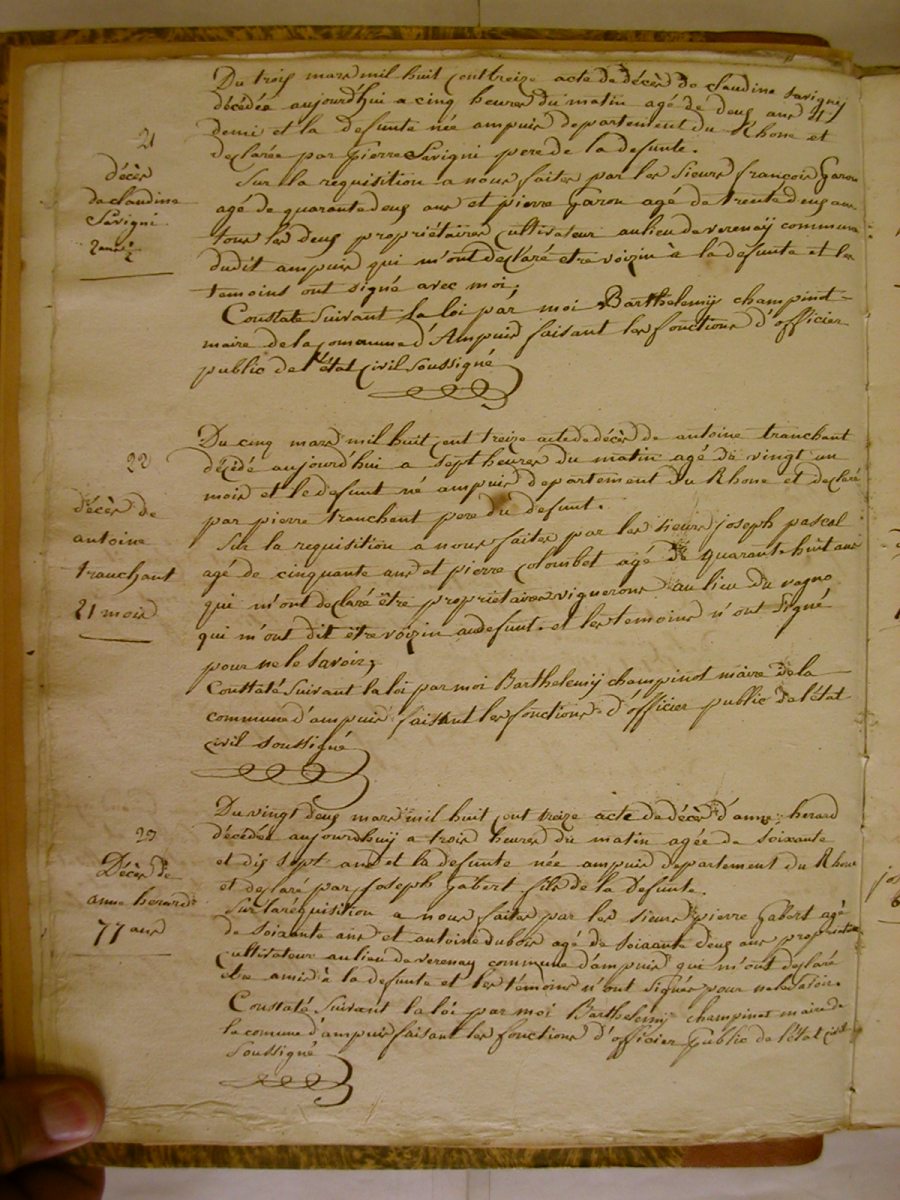 Du trois mars mil huit cent treize acte de décès de claudine Savigny
décédée aujourd'hui a cinq heures du matin agé de deus ans et
demi et la defunte née ampuis departement du Rhone et
declarée par Pierre Savigni pere de la defunte.
Sur la requisition a nous faites par les Sieurs françois Garon
agé de quarante deus ans et pierre Garon agé de trente deus ans
tous les deus propriétaires cultivateur au lieu de verenay commune
dudit ampuis qui m'ont declaré etre voizin à la defunte et les
temoins ont signé avec moi,
Constate Suivant La loi par moi Barthelemy champinot
maire de la commune d'Ampuis faisant les fonctions d'officier
public de l'état Civil Soussigné
21
décès
de claudine
Savigni
2 ans ½
Du cinq mars mil huit cent treize acte de décès de antoine tranchant
décédé aujourd'hui a sept heures du matin agé de vingt un
mois et le defunt né ampuis departement du Rhone et declaré
par pierre tranchant pere du defunt.
Sur la requisition a nous faites par les sieurs joseph pascal
agé de cinquante ans et pierre colombet agé de quarant-huit ans
qui m'ont declaré être propriétaires vignerons au lieu du
qui m'ont dit être voizin au defunt. et les temoins n'ont Signé
pour ne le Savoir,
Constaté Suivant la loi par moi Barthelemy champinot maire de la
commune d'ampuis faisant les fonctions d'officier public de l'état
civil soussigné
22
décès de
antoine
tranchant
21 mois
Du vingt deus mars mil huit cent treize acte de décès d'anne herard
décédée aujourdhuy a trois heures du matin agée de Soixante
et dis sept ans et la defunte née ampuis departement du Rhone
et declaré par Joseph Gabert fils de la defunte.
Sur la réquisition a nous faites par les sieurs pierre Gabert agé
de Soixante ans et antoine dubois agé de Soixante deus ans propriétaires
cultivateur au lieu de verenay commune d'ampuis qui m'ont declaré
être amis à la defunte et les témoins n'ont Signer pour ne le Savoir.
Constaté Suivant la loi par moi Barthelemy champinot maire de
la commune d'ampuis faisant les fonctions d'officier public de l'état civil
Soussigné
23
Décès de
anne herard
77 ans